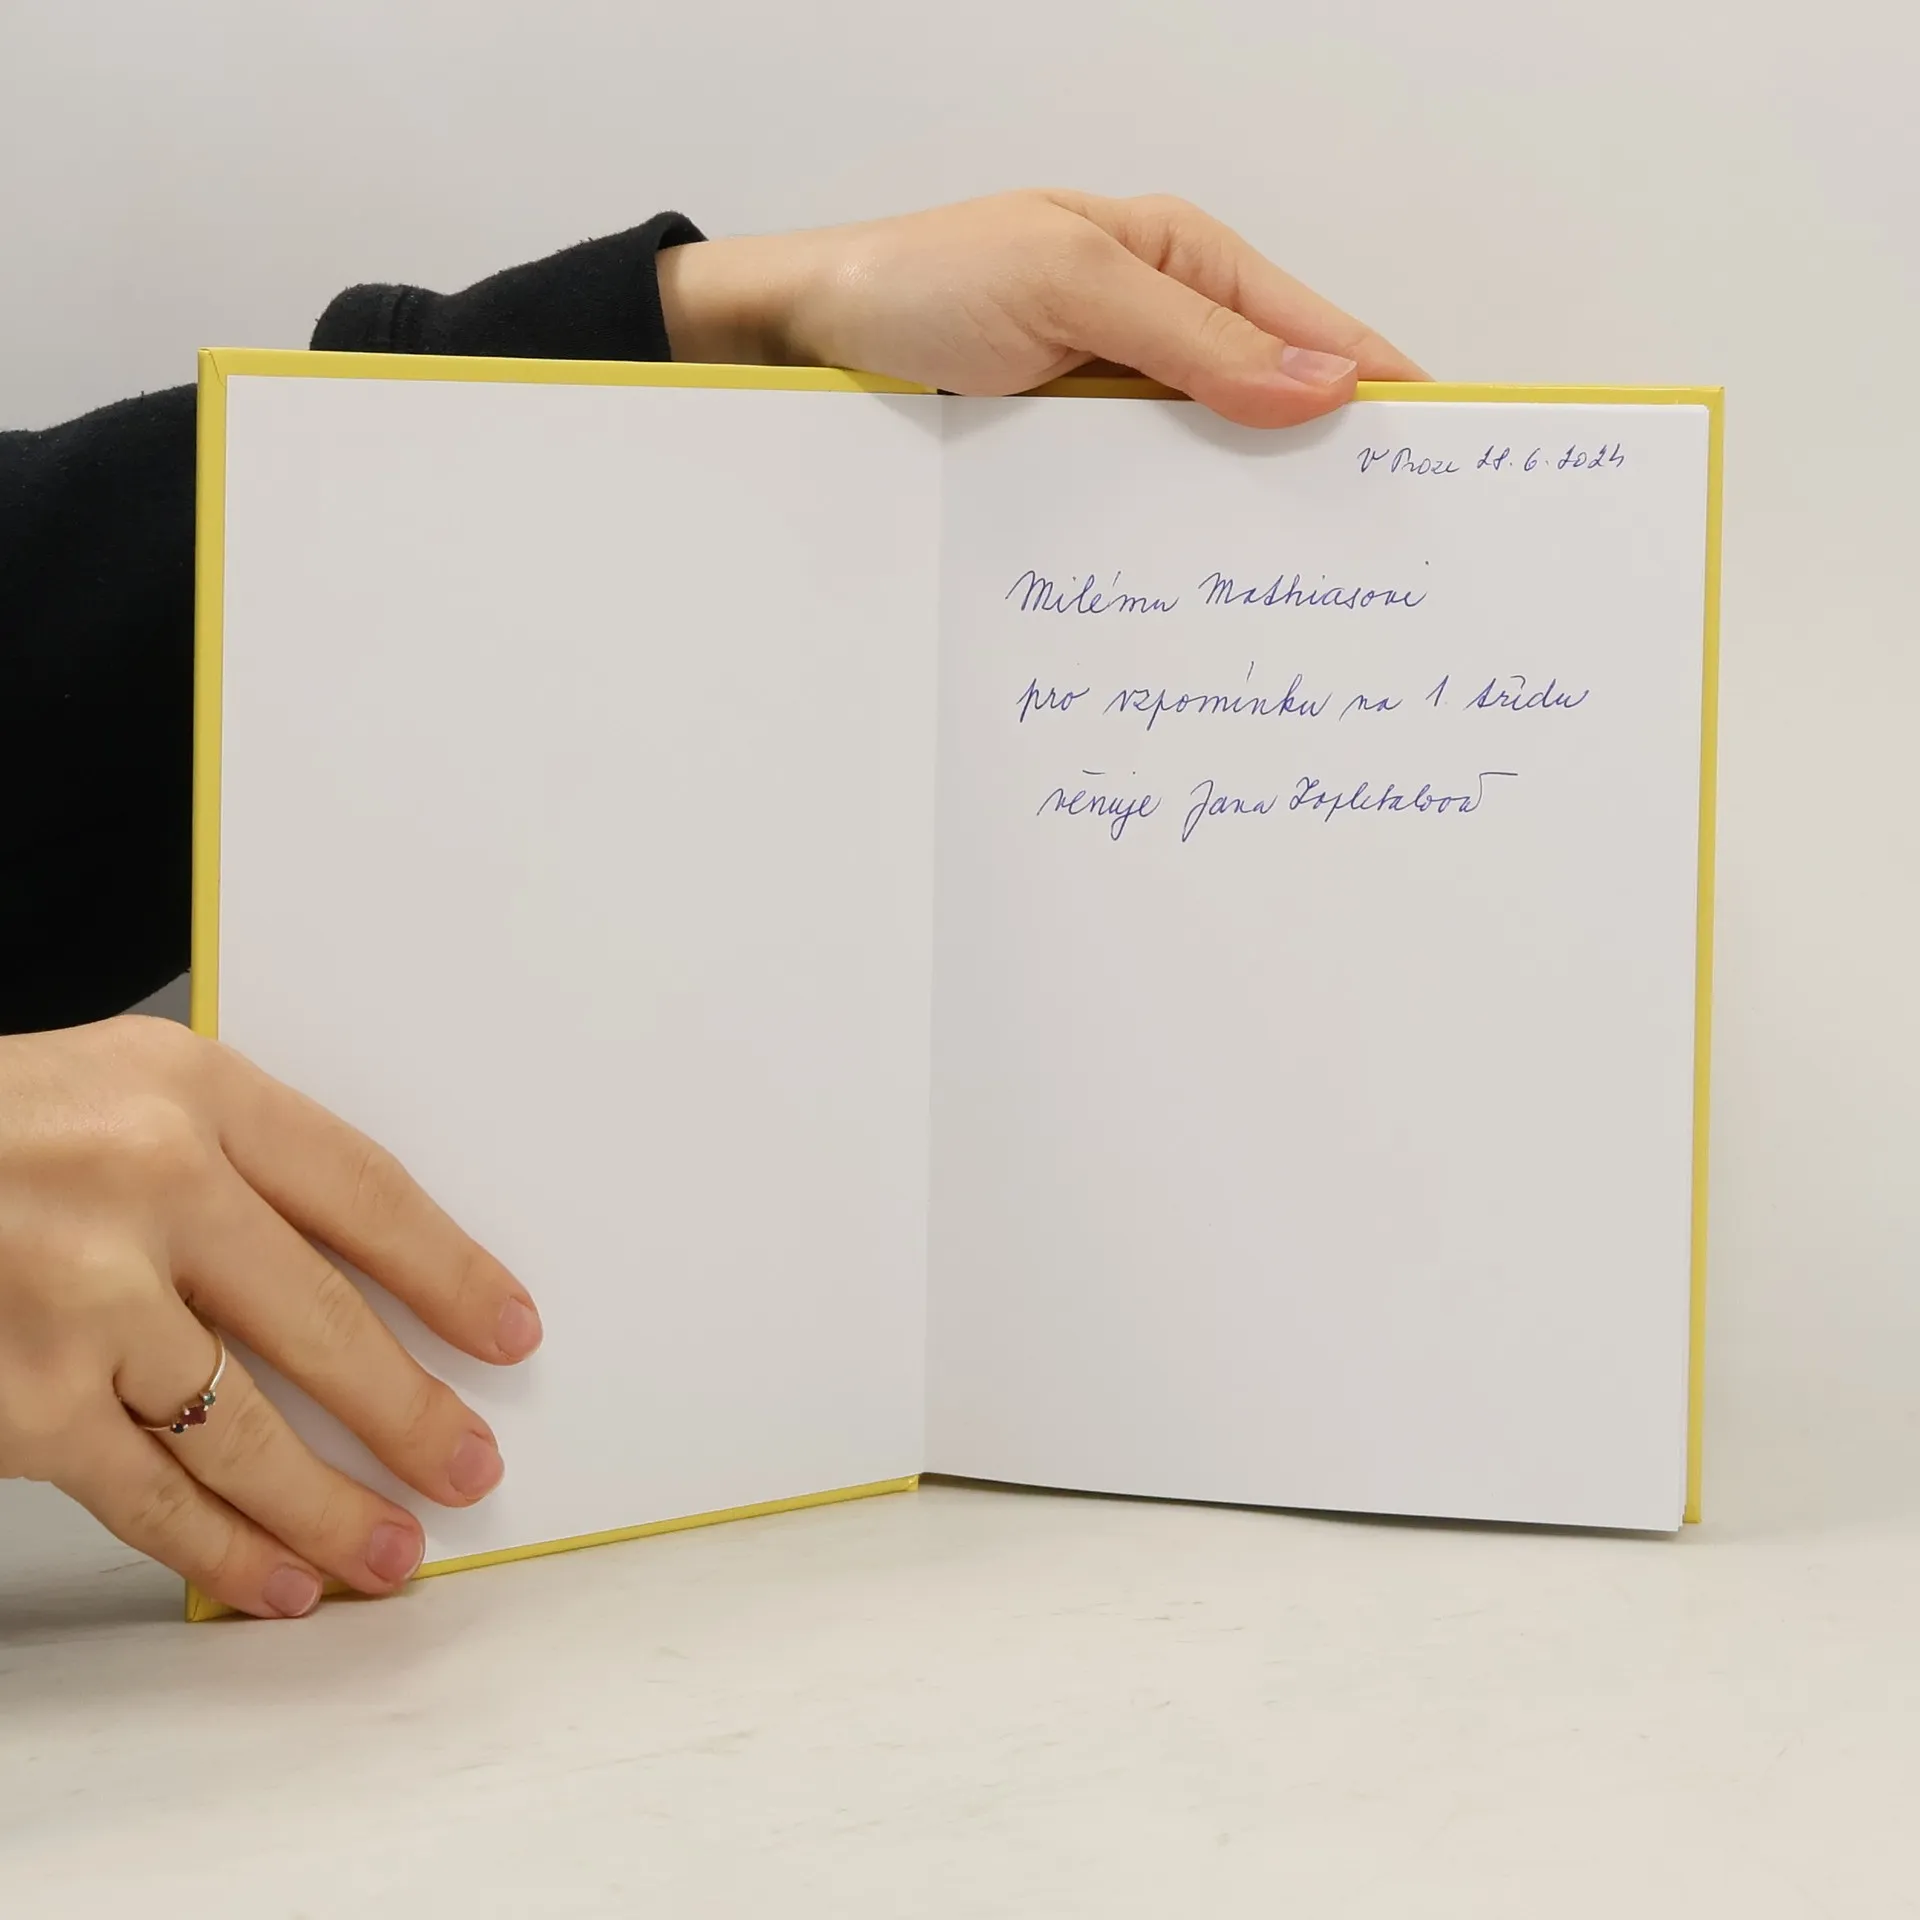 V Praze 28. 6. 2024
Milému Mathiasovi
pro vzpomínku na 1. třídu
věnuje Jana Zapletalová